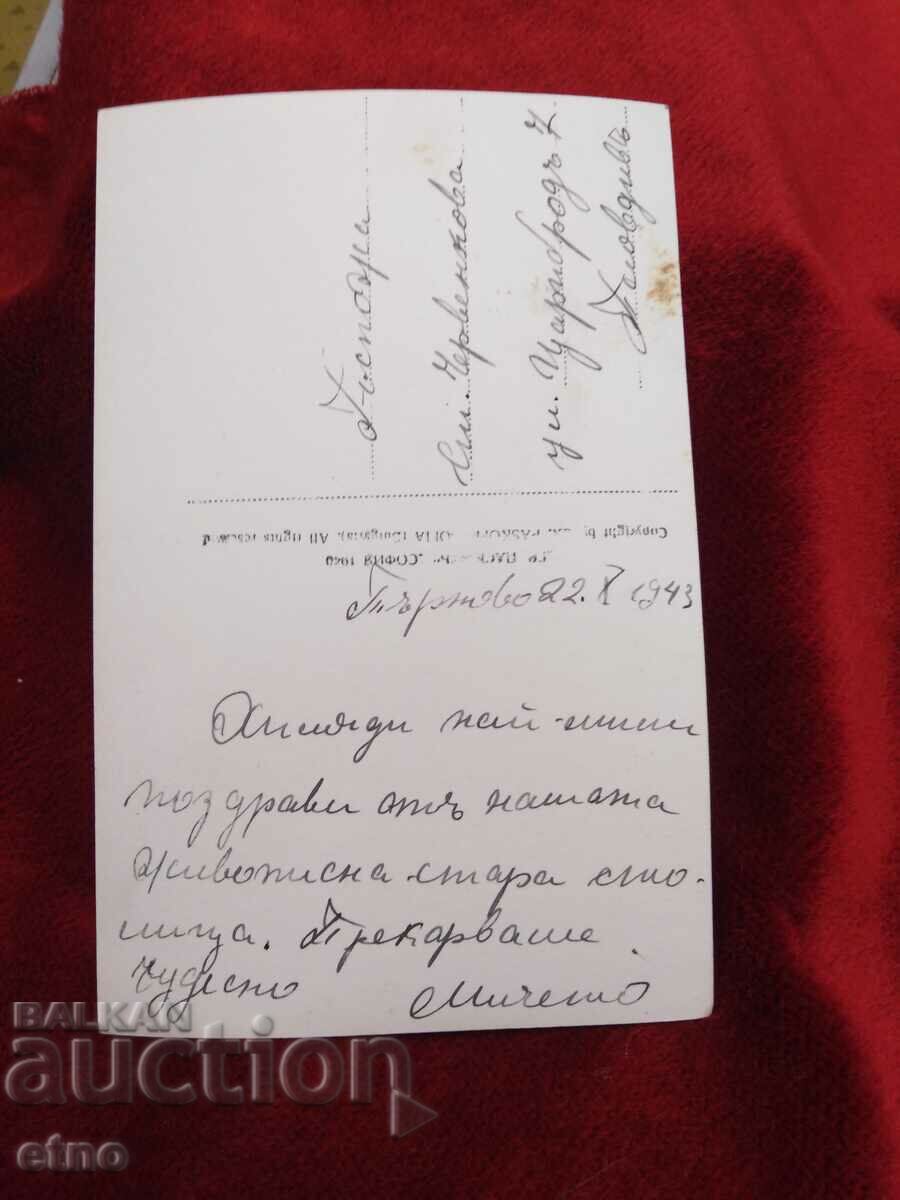 Госпожа
Ем. Червенкова
ул. Царибродъ 7
Пловдивъ
Copyright by PASKOFF SOFIA (Bulgaria), All rights reserved
ГР. ПАСКОВЪ, СОФИЯ 1940
Търново 22. X 1943
Хиляди най-мили
поздрави отъ нашата
живописна стара сто-
лица. Прекарваме
чудесно Мичето
BALKAN
auction
etno